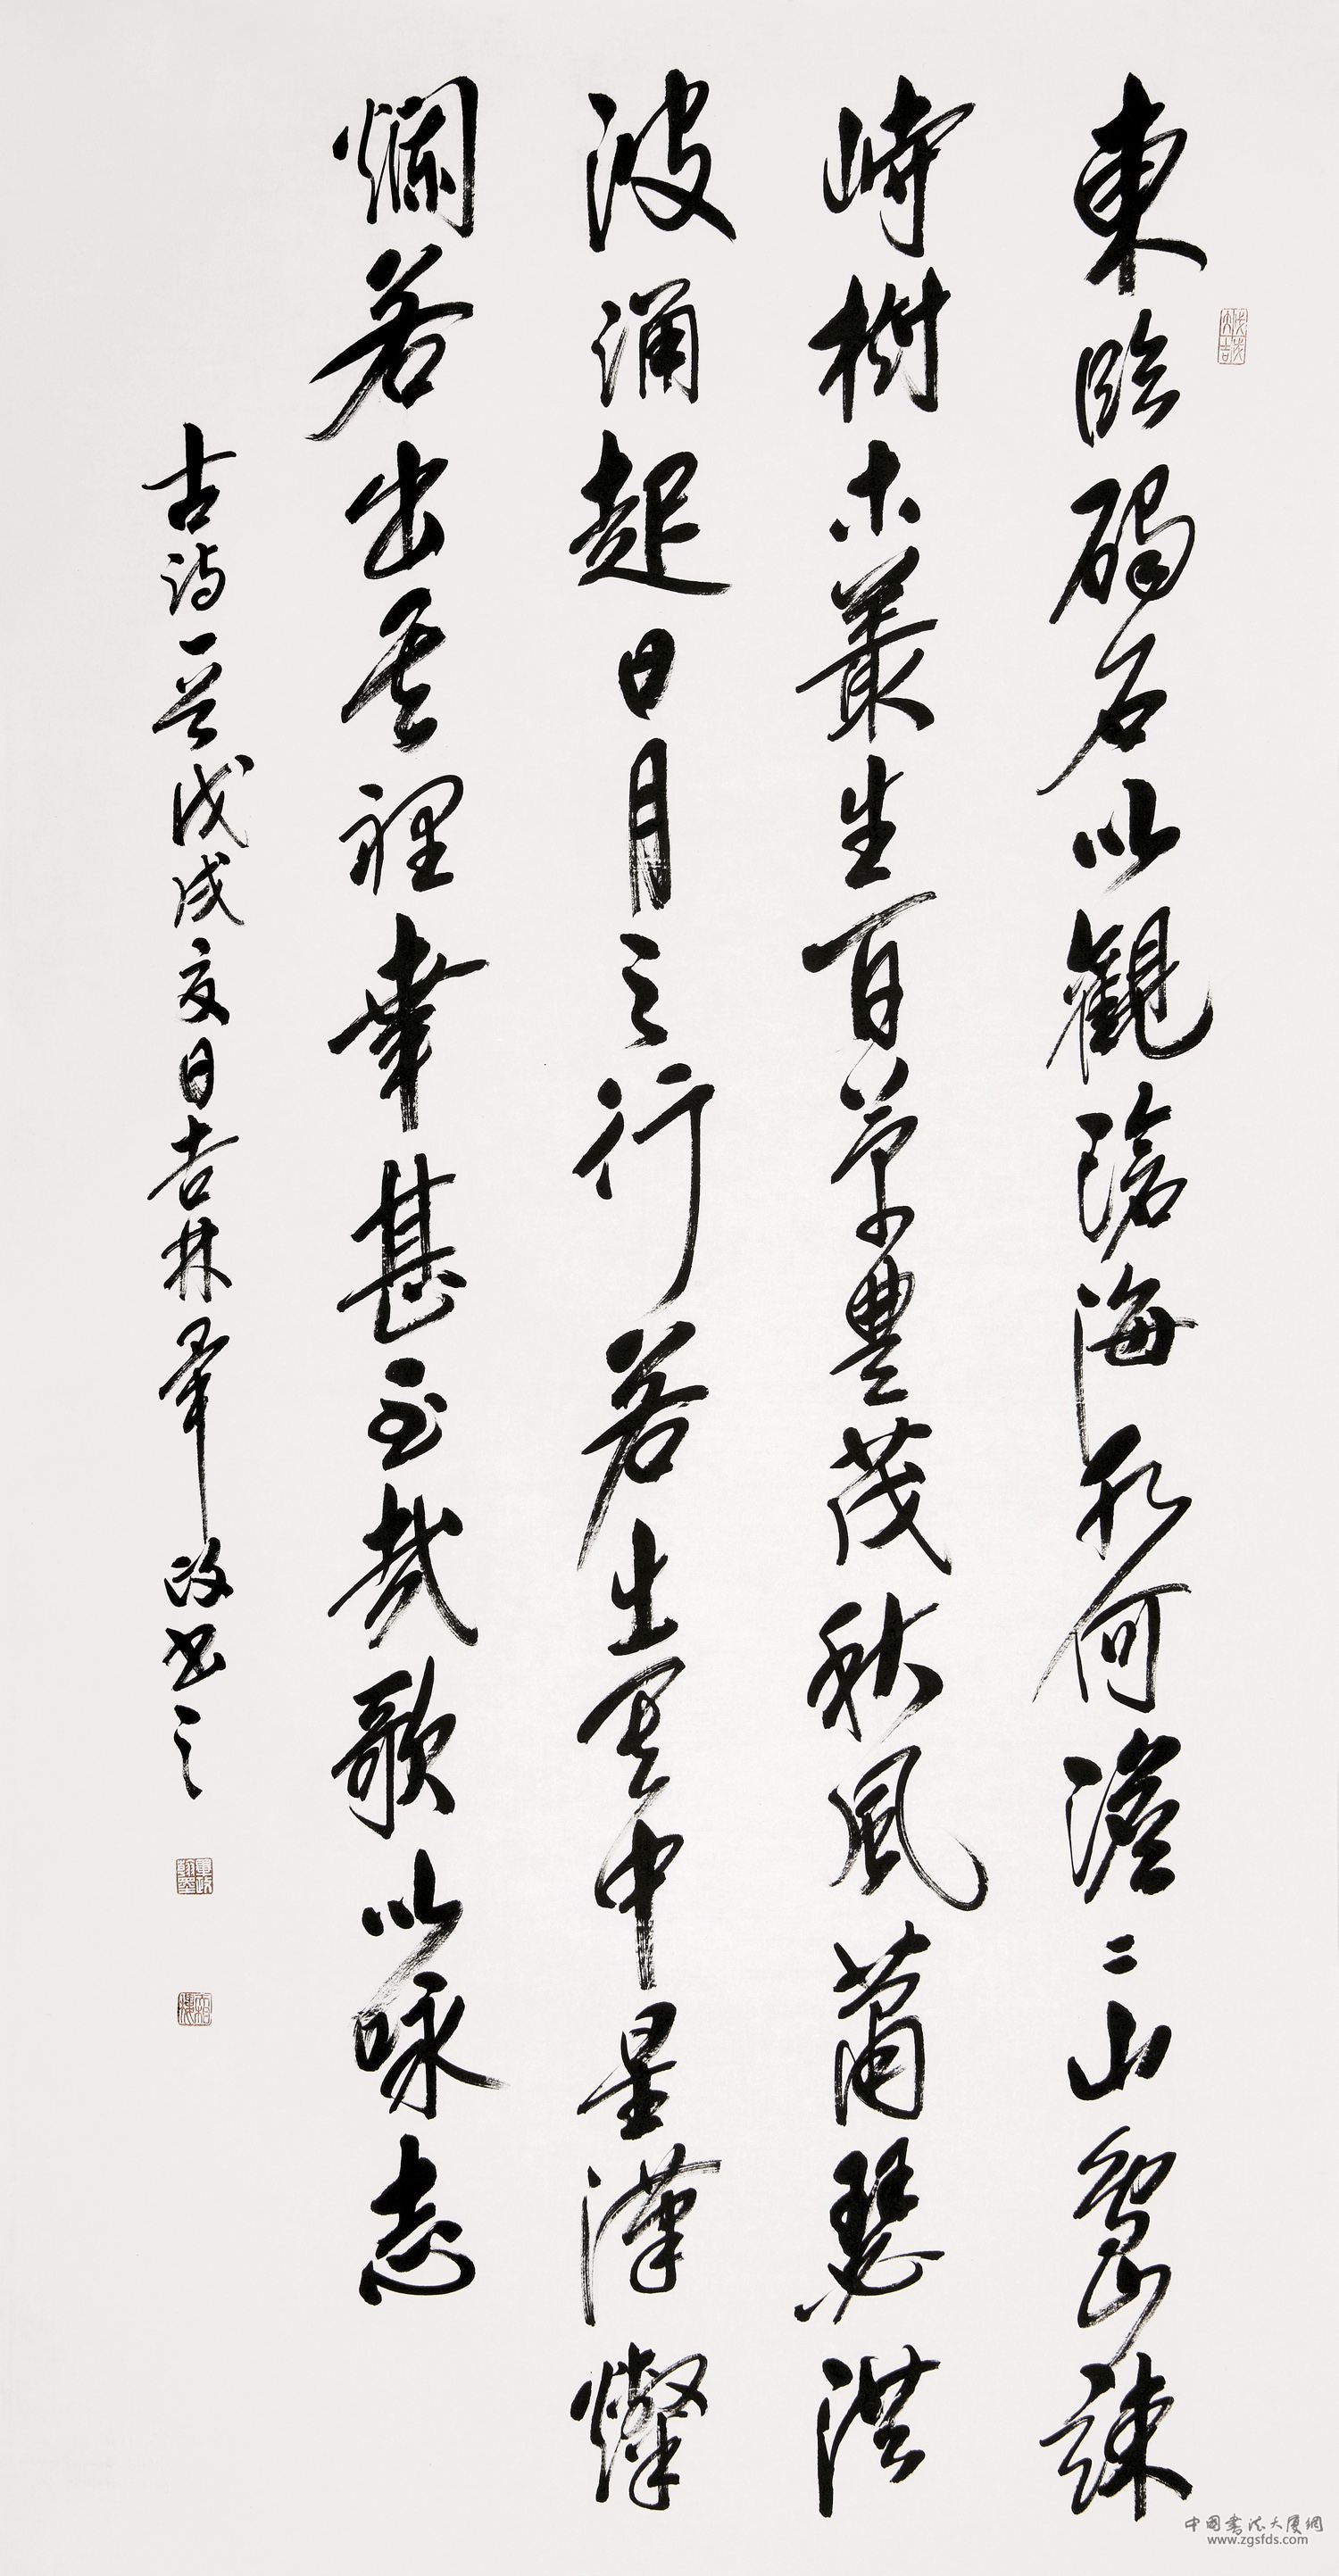 東臨碣石以觀滄海水何澹々山島竦
峙樹木叢生百草豐茂秋風蕭瑟洪
波涌起日月之行若出其中星漢燦
爛若出其裡幸甚至哉歌以咏志
古詩一首戊戌夏日吉林軍政書之
戊戌大吉
軍政翰墨
中國書法大廈網
www.zgsfds.com